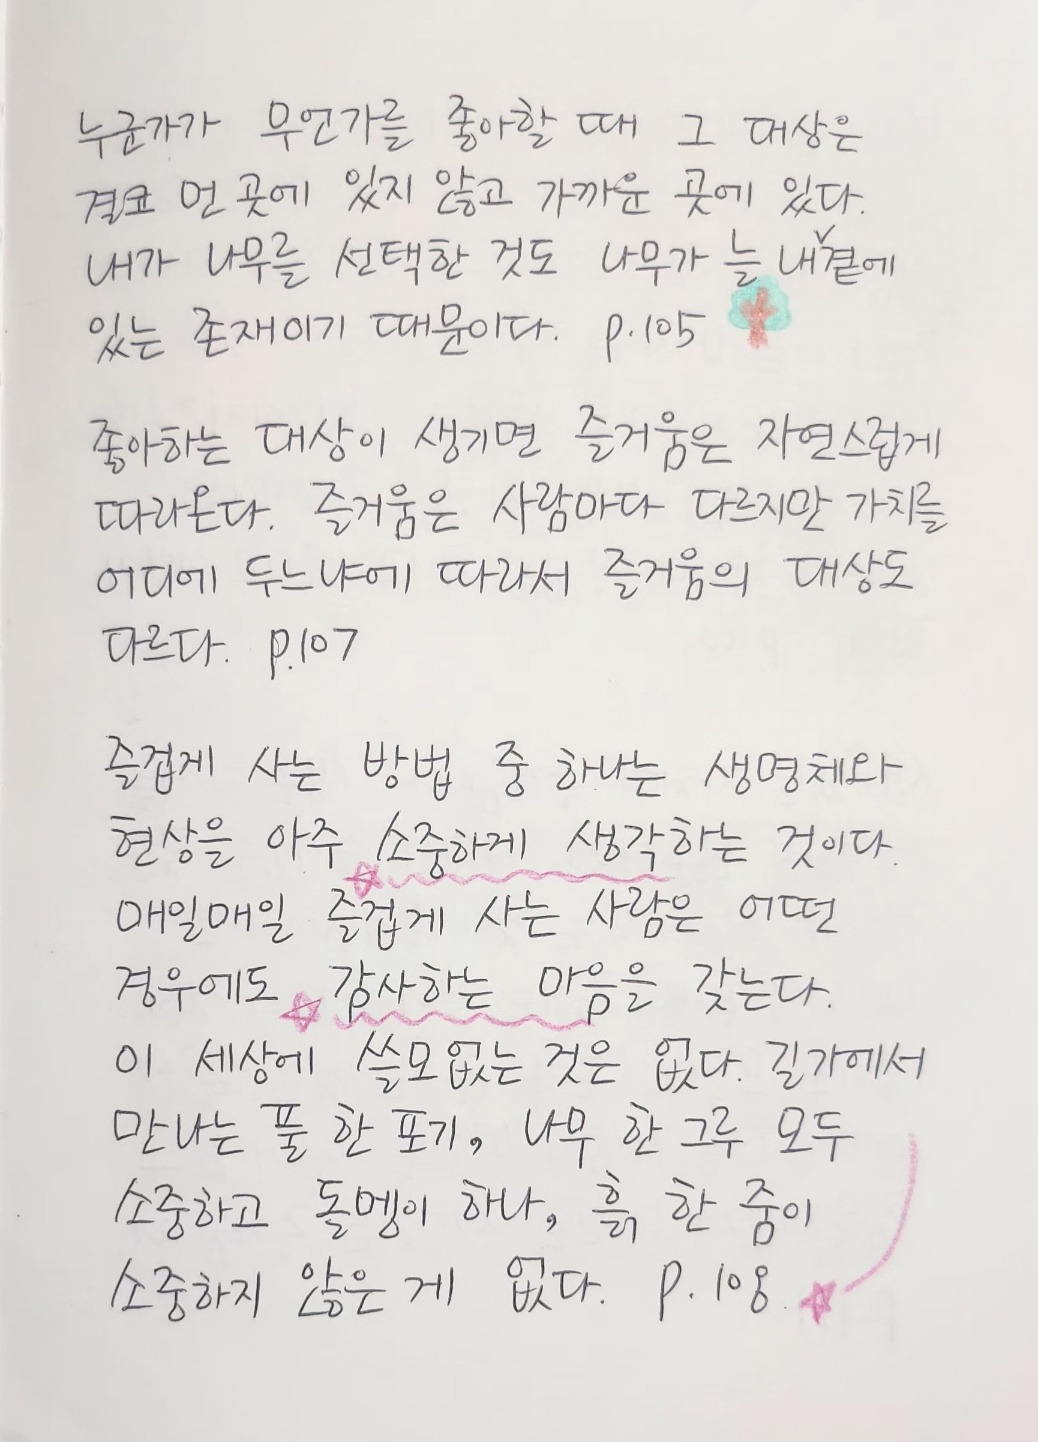 누군가가 무언가를 좋아할 때 그 대상은
결코 먼 곳에 있지 않고 가까운 곳에 있다.
내가 나무를 선택한 것도 나무가 늘 내∨곁에
있는 존재이기 때문이다. p.105
좋아하는 대상이 생기면 즐거움은 자연스럽게
따라온다. 즐거움은 사람마다 다르지만 가치를
어디에 두느냐에 따라서 즐거움의 대상도
다르다. p.107
즐겁게 사는 방법 중 하나는 생명체와
현상을 아주 소중하게 생각하는 것이다.
매일매일 즐겁게 사는 사람은 어떤
경우에도 감사하는 마음을 갖는다.
이 세상에 쓸모없는 것은 없다. 길가에서
만나는 풀 한 포기, 나무 한 그루 모두
소중하고 돌멩이 하나, 흙 한 줌이
소중하지 않은 게 없다. p.108